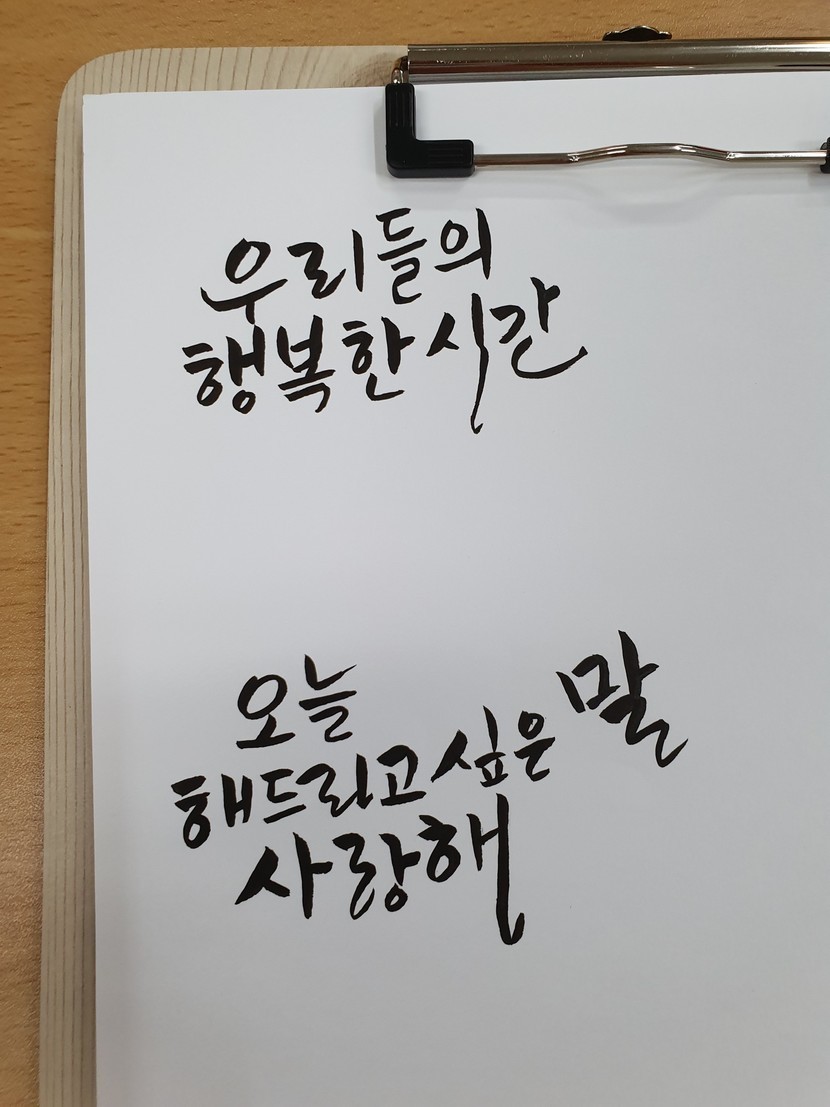 우리들의
행복한 시간
오늘
해드리고 싶은 말
사랑해